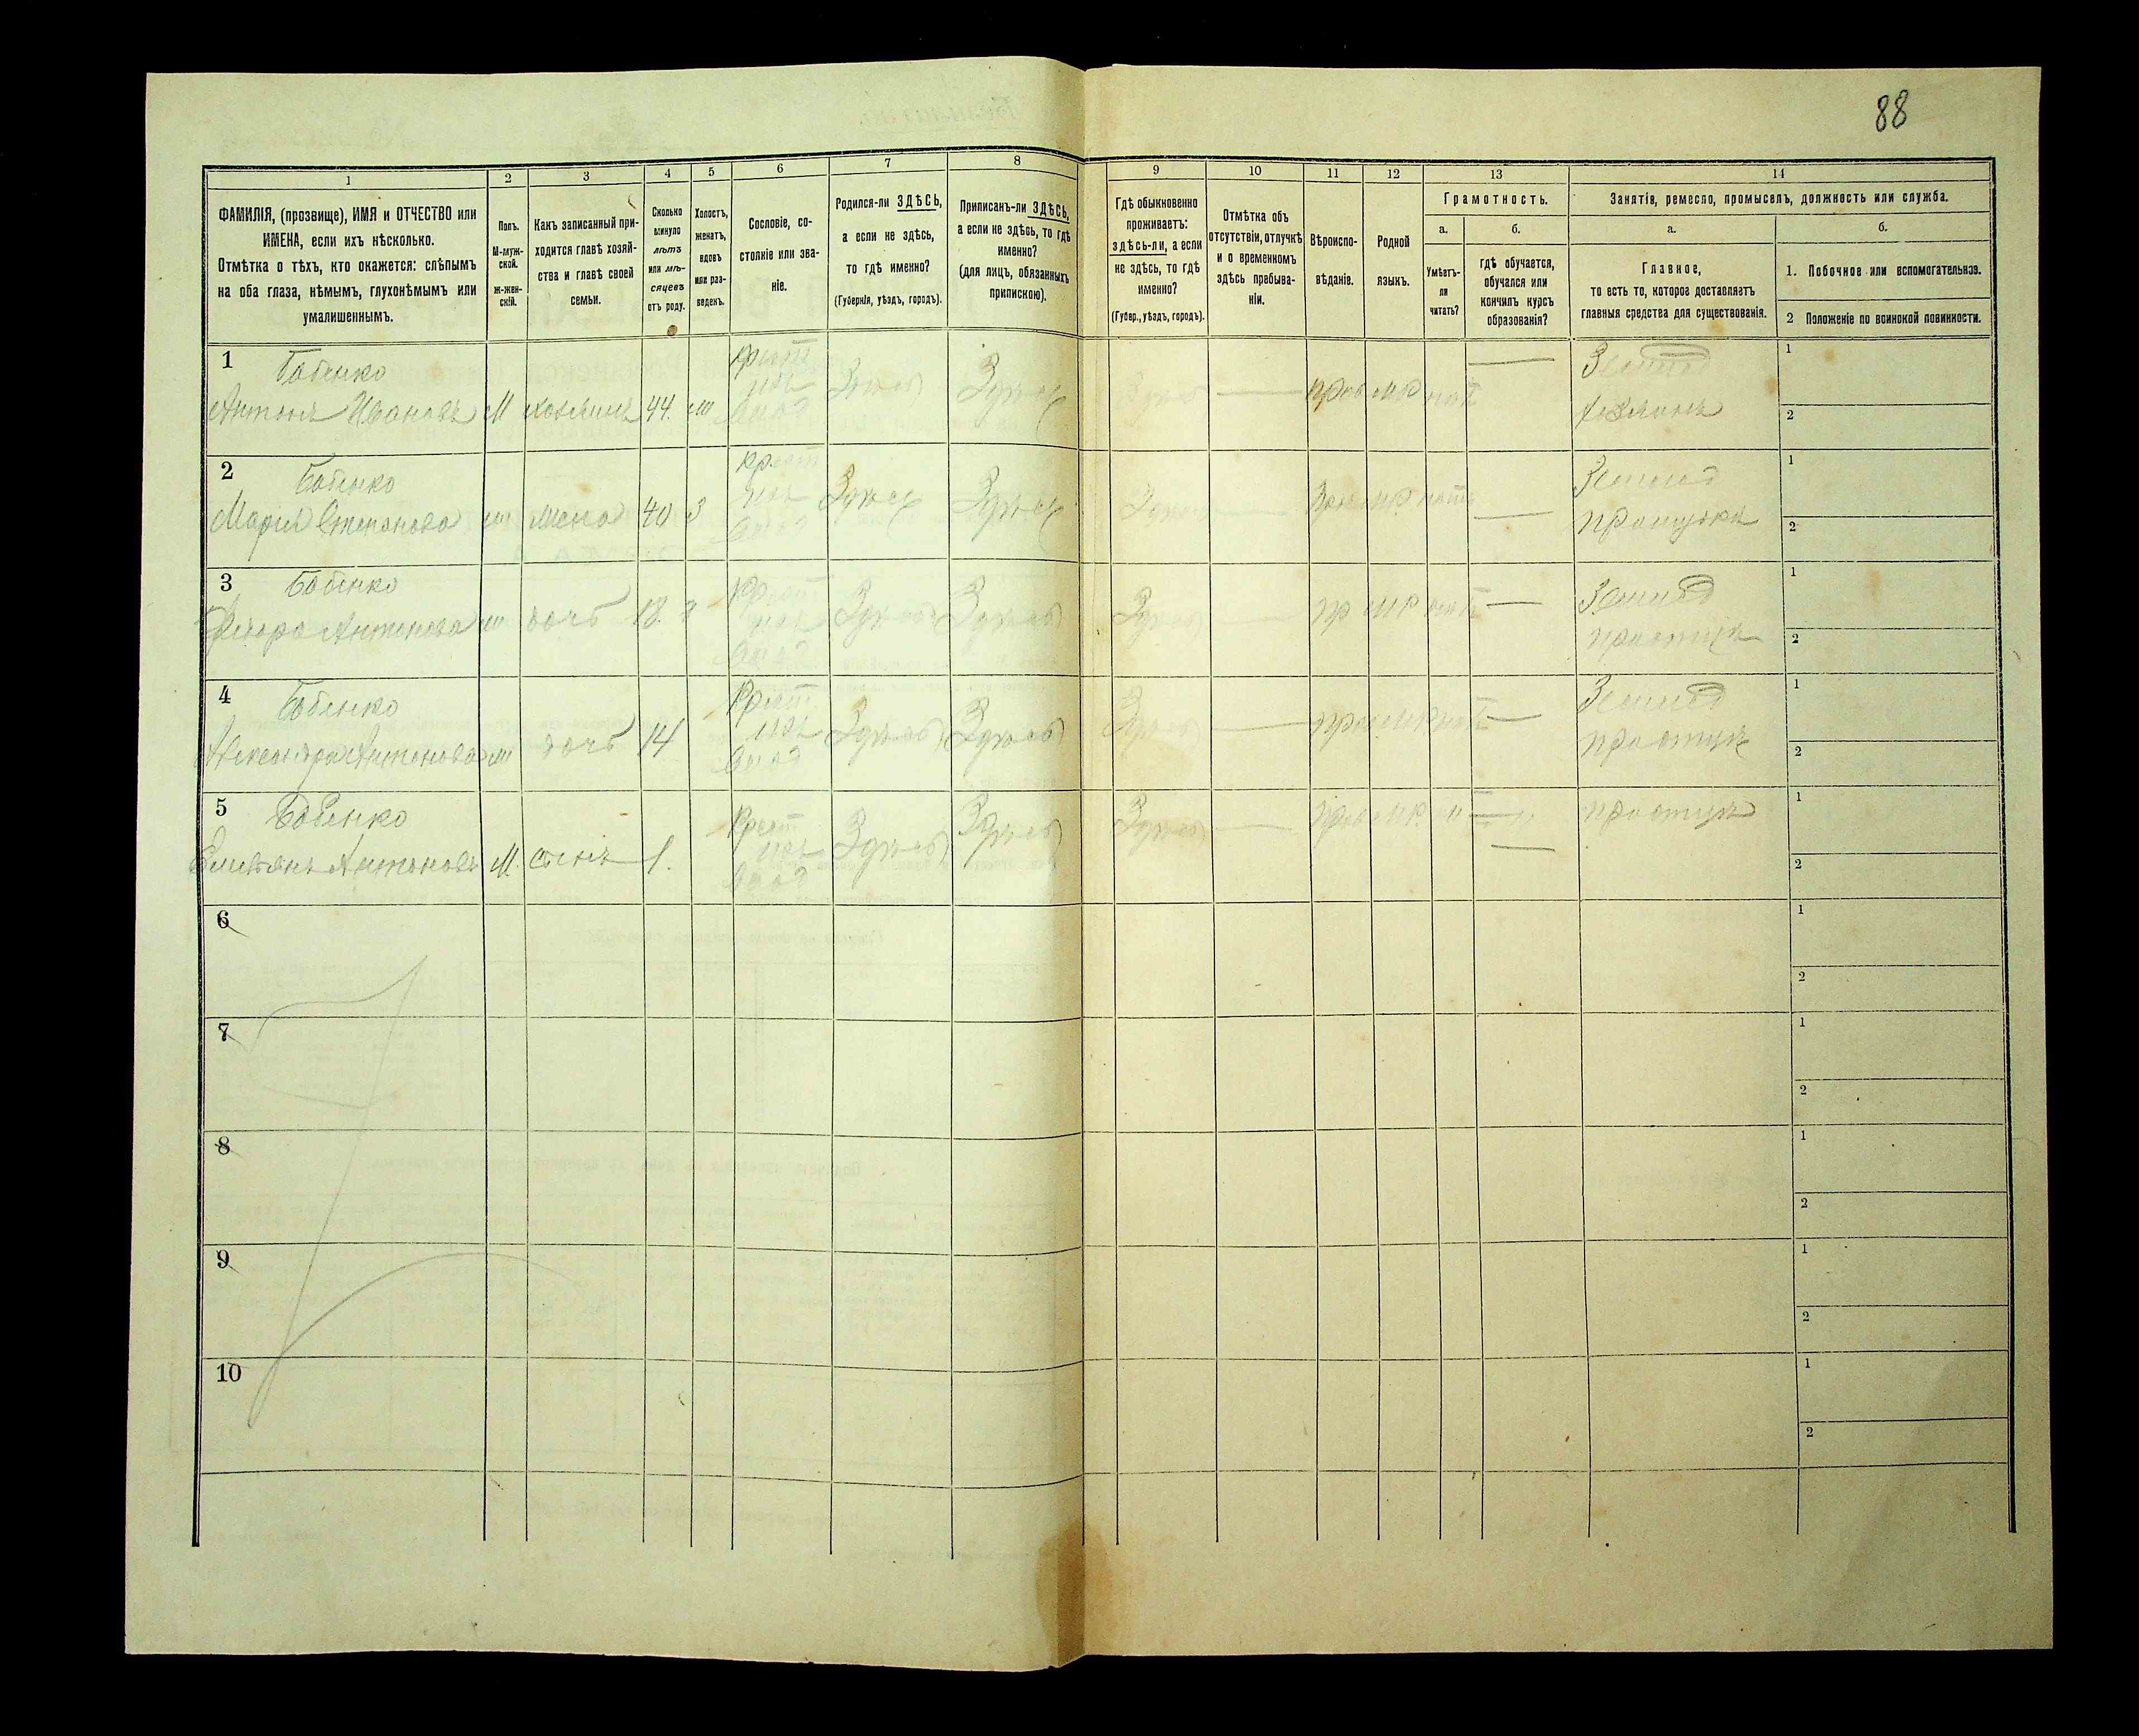 88
1 2 3 4 5 6 7 8 9 10 11 12 13 14
ФАМИЛІЯ, (прозвище), ИМЯ и ОТЧЕСТВО или
ИМЕНА, если ихъ нѣсколько.
Отмѣтка о тѣхъ, кто окажется: слѣпымъ
на оба глаза, нѣмымъ, глухонѣмымъ или
умалишеннымъ.
Полъ.
М-муж-
ской.
ж-жен-
скій.
Какъ записанный при-
ходится главѣ хозяй-
ства и главѣ своей
семьи.
Сколько
минуло
лѣтъ
или мѣ-
сяцевъ
отъ роду.
Холостъ,
женатъ,
вдовъ
или раз-
веденъ.
Сословіе, со-
стояніе или зва-
ніе.
Родился-ли ЗДѢСЬ,
а если не здѣсь,
то гдѣ именно?
(Губернія, уѣздъ, городъ).
Приписанъ-ли ЗДѢСЬ,
а если не здѣсь, то гдѣ
именно?
(для лицъ, обязанныхъ
припискою).
Гдѣ обыкновенно
проживаетъ:
здѣсь-ли, а если
не здѣсь, то гдѣ
именно?
(Губер., уѣздъ, городъ).
Отмѣтка объ
отсутствіи, отлучкѣ
и о временномъ
здѣсь пребыва-
ніи.
Вѣроиспо-
вѣданіе.
Родной
языкъ.
Грамотность.
а.
Умѣетъ-
ли
читать?
б.
гдѣ обучается,
обучался или
кончилъ курсъ
образованія?
Занятія, ремесло, промыселъ, должность или служба.
а.
Главное,
то есть то, которое доставляетъ
главныя средства для существованія.
б.
1. Побочное или вспомогательное.
2 Положеніе по воинской повинности.
1 Бабенко
Антонъ Ивановъ М хозяинъ 44. Здѣсь Здѣсь Здѣсь прав мр нѣтъ
хозяинъ
1
2
2 Бабенко
Марія Степанова ж жена 40 З Здѣсь Здѣсь Здѣсь
1
2
3 Бабенко
Антонова ж дочь 18. Здѣсь Здѣсь Здѣсь пр мр
1
2
4 Бабенко
Александра Антонова ж дочь 14 Здѣсь Здѣсь Здѣсь
1
2
5 Бабенко
Емельянъ Антоновъ М. сынъ 1. Здѣсь Здѣсь Здѣсь
1
2
6
1
2
7
1
2
8
1
2
9
1
2
10
1
2